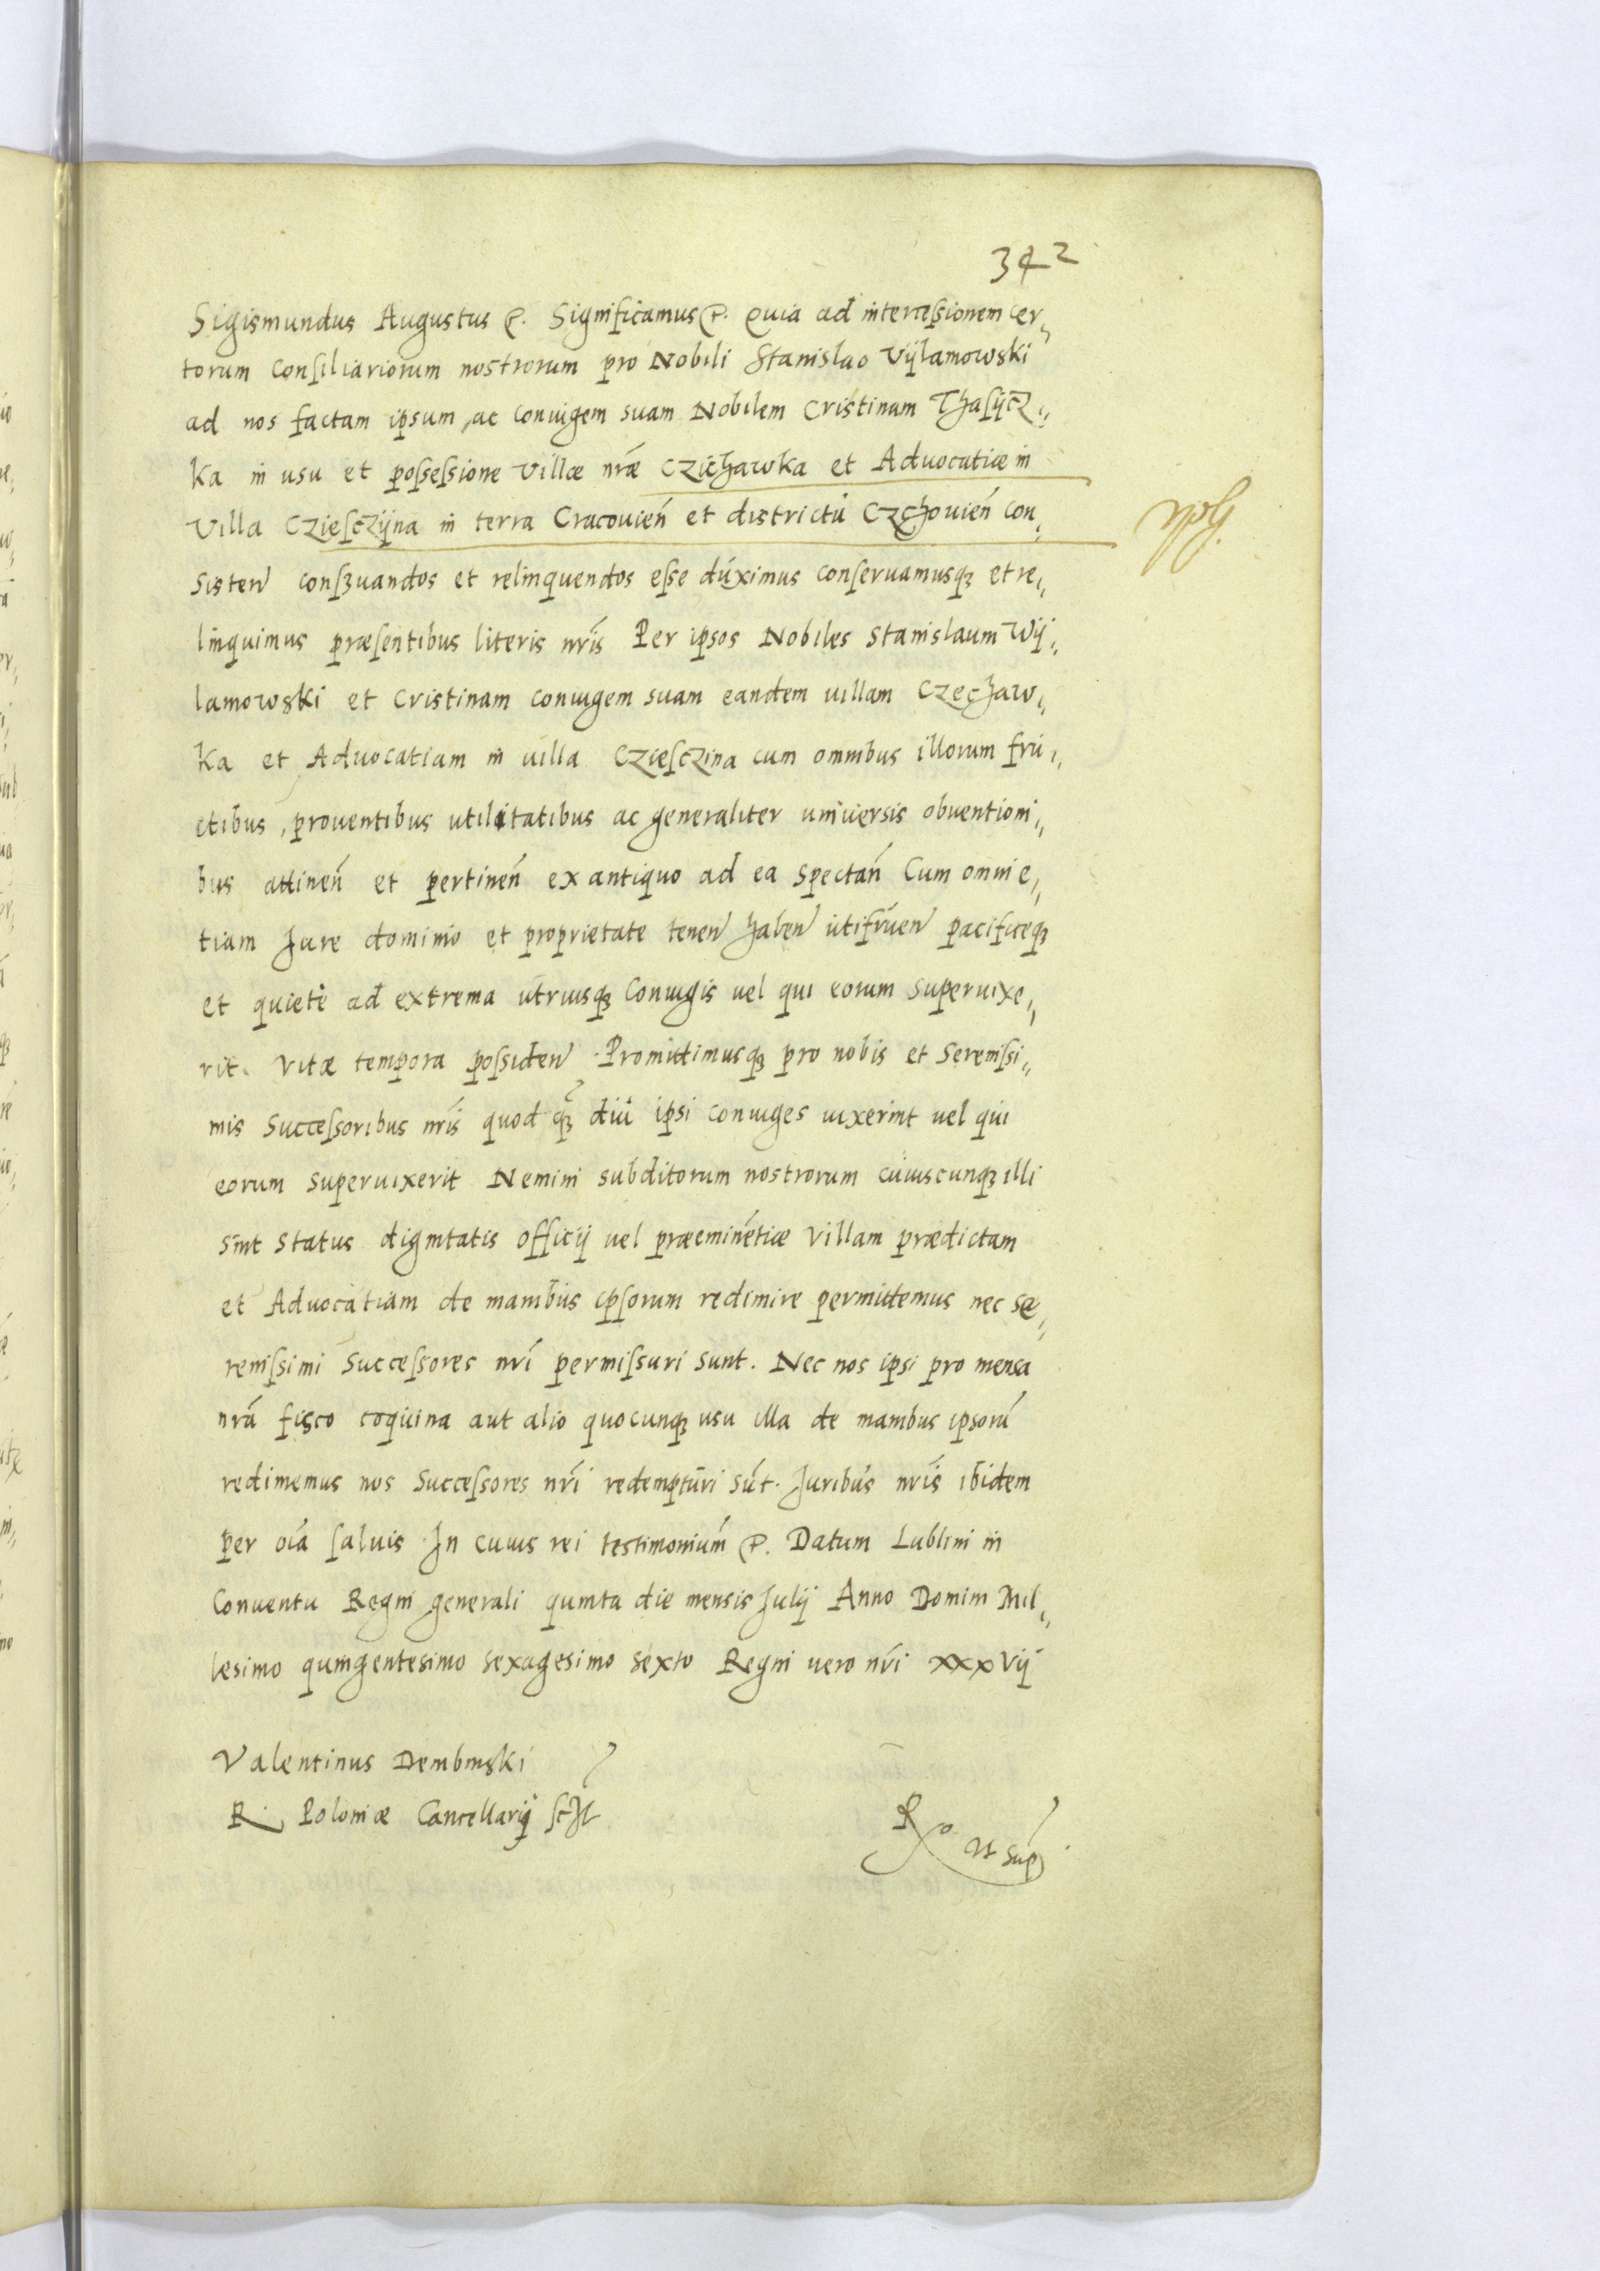 342
Sigismundus Augustus &c. Significamus &c. Quia ad intercessionem cer„
torum Consiliariorum nostrorum pro Nobili Stanislao Vijlamowski
ad nos factam ipsum, ac coniugem suam Nobilem Cristinam Thasijcz„
ka in usu et possessione Villæ nrãe Czichawka et Aduocatiæ in
Villa Czieſczijna in terra Cracouień et districtu Czchouień con„
sisteń conſ3uandos et relinquendos eſse duximus conſeruamusq3 et re„
linquimus præſentibus literis nrĩs Per ipsos Nobiles Stanislaum Wij„
lamowski et Cristinam coniugem suam eandem uillam Czechaw„
ka et Aduocatiam in uilla Czieſczina cum omnibus illorum fru„
ctibus, prouentibus utilitatibus ac generaliter uniuersis obuentioni„
bus attineń et pertineń ex antiquo ad ea spectań Cum omni e„
tiam Jure dominio et proprietate teneń habeń utifrueń pacificeq3
et quiete ad extrema utriusq3 Coniugis uel qui eorum superuixe„
rit. Vitæ tempora poſsideń. Promittimusq3 pro nobis et Sereniſsi„
mis Succeſsoribus nrĩs quod q3̃ diu ipsi coniuges uixerint uel qui
eorum superuixerit Nemini subditorum nostrorum cuiuscunq3 illi
sint status dignitatis officij uel præeminẽtiæ Villam prædictam
et Aduocatiam de manibus ipſorum redimire permittemus nec se„
reniſsimi Succeſsores nrĩ permiſsuri sunt. Nec nos ipsi pro mensa
nrã fisco coquina aut alio quocunq3 usu illa de manibus ipsorũ
redimemus nos Succeſsores nrĩ redempturi sũt. Juribus nrĩs ibidem
per oĩa ſaluis In cuius rei testimonium &c. Datum Lublini in
Conuentu Regni generali quinta die mensis Julij Anno Domini Mil„
lesimo quingentesimo sexagesimo sexto Regni uero nrĩ xxxvij
Valentinus Dembinski
R. Poloniæ Cancellarius sst
Ro ut sup